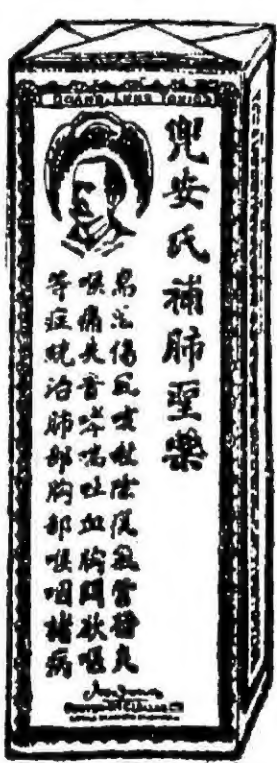 DOANS LUNG TONIC
兜安氏補肺聖藥
治傷風咳嗽除痰氣管發炎
喉痛失音哮喘吐血胸悶欬嗆
等症統治肺部胸部喉咽諸病